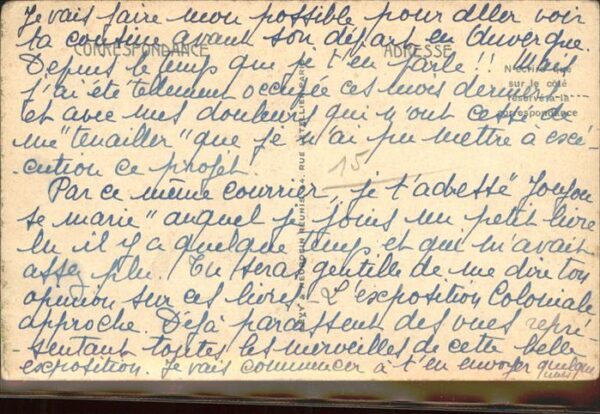 Je vais faire mon possible pour aller voir
ta cousine avant son départ en Auvergne.
CORRESPONDANCE
ADRESSE
Depuis le temps que je t'en parle !! Mais
j'ai été tellement occupée ces mois derniers
et avec mes douleurs qui n'ont cessé de
me "tenailler" que je n'ai pu mettre à exé-
cution ce projet.
15
Par ce même courrier, je t'adresse "Joujou
se marie" auquel je joins un petit livre
lu il y a quelque temps et qui m'avait
assez plu. Tu seras gentille de me dire ton
opinion sur ces livres - L'exposition Coloniale
approche. Déjà paraissent des vues repré-
sentant toutes les merveilles de cette belle
exposition. Je vais commencer à t'en envoyer quelques
unes
sur le côté
réservé à la
correspondance
RUE LETELLIER